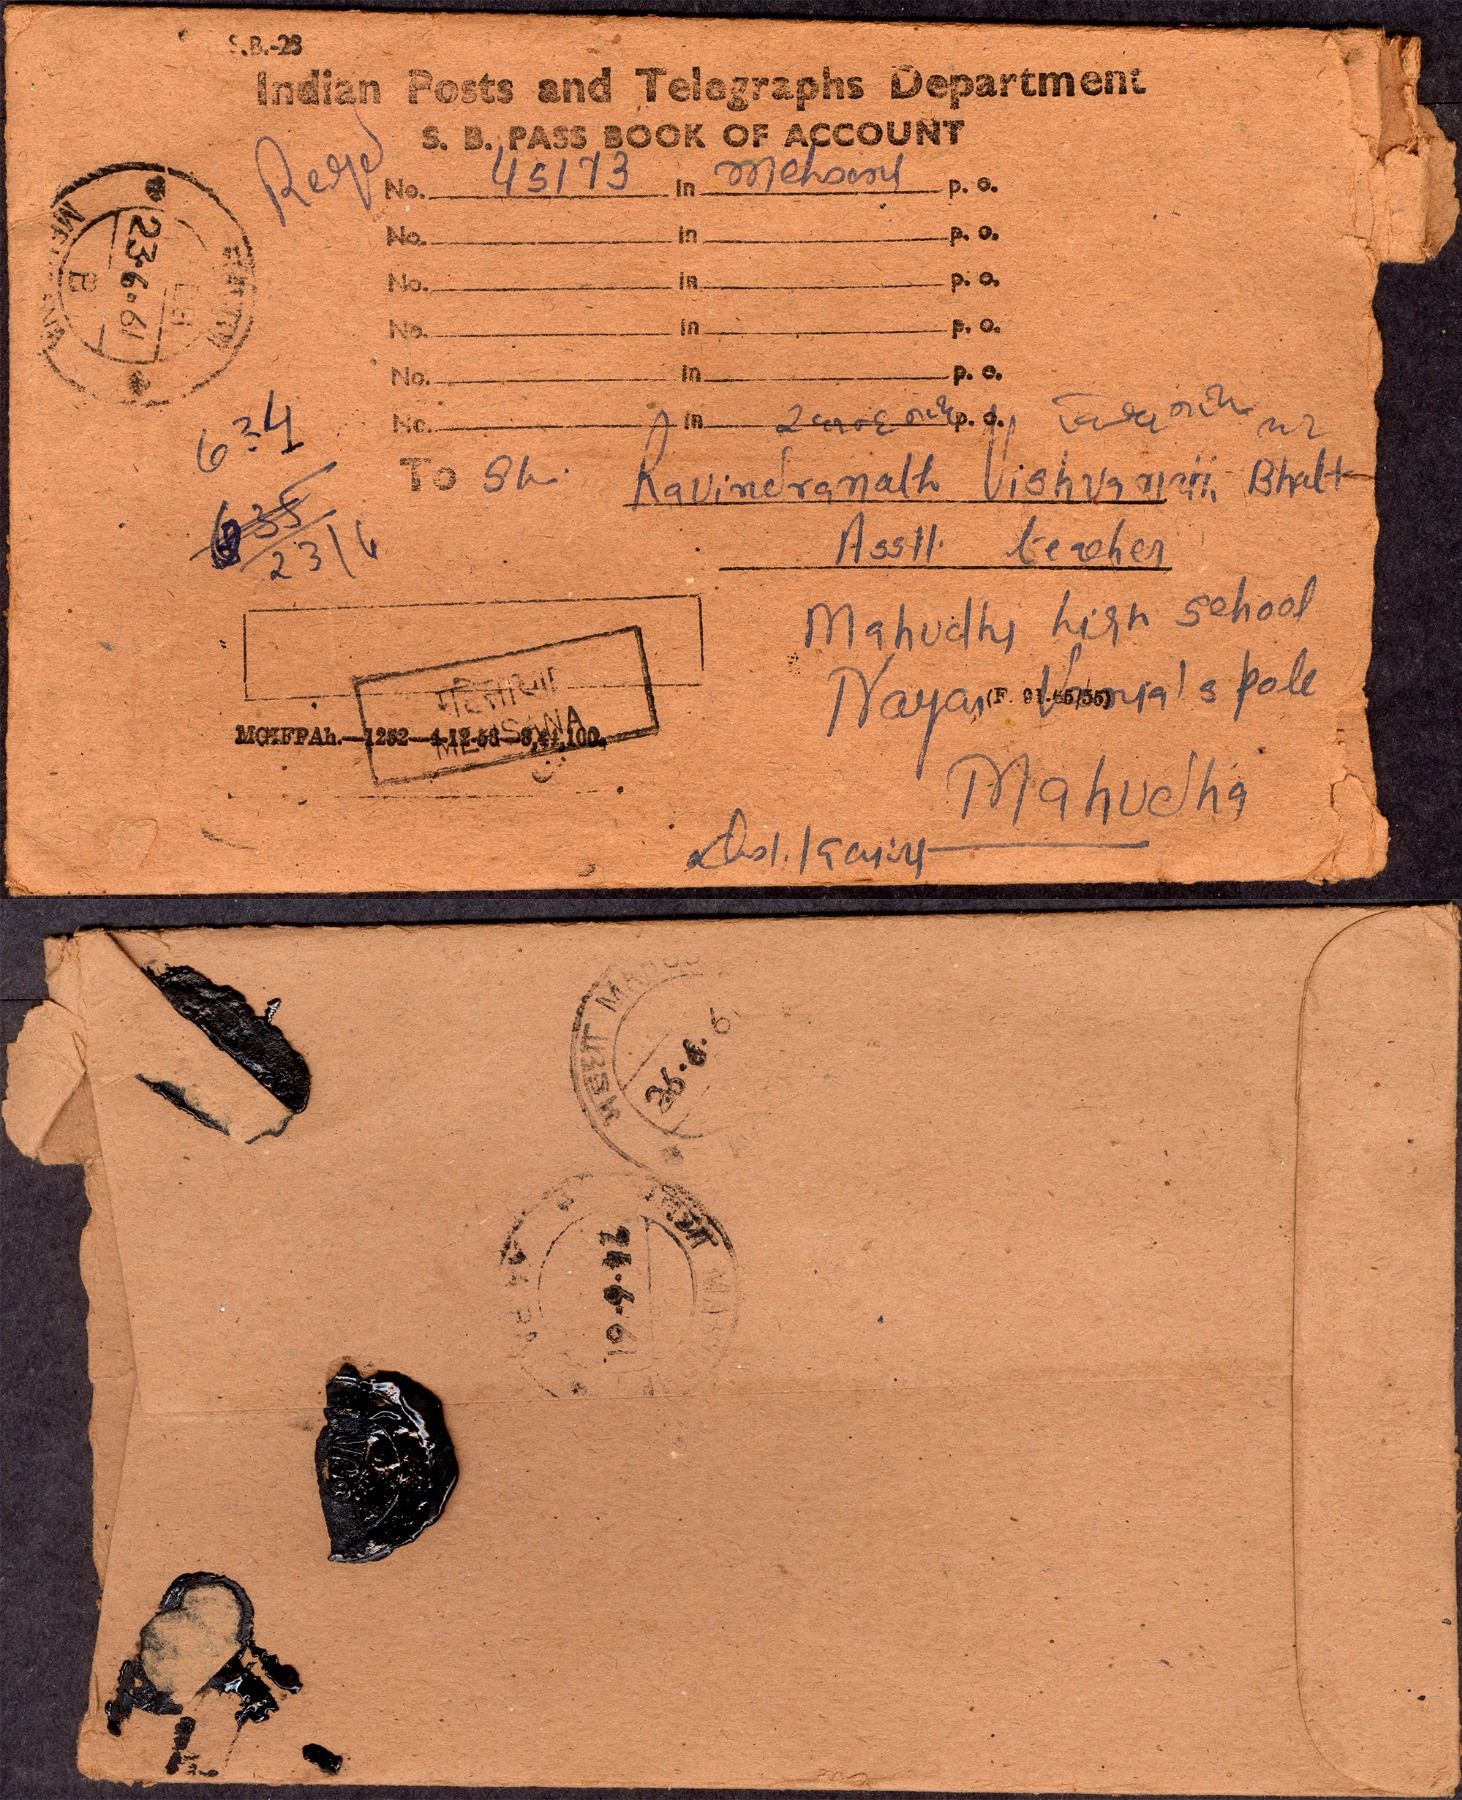 S.B.-28
Indian Posts and Telegraphs Department
S. B. PASS BOOK OF ACCOUNT
Regd
No. 45173 in Mehsana p. o.
No. in p. o.
No. in p. o.
No. in p. o.
No. in p. o.
No. in p. o.
23.6.61
B
634
635
23/6
To Sh. Ravindranath Vishvanath Bhatt
Asstt. teacher
Mahudha high school
Nagar Vania's pole
(F. 91-55/55)
MEHSANA
MGIFPAh.—1252—4-12-58—3,41,100.
Mahudha
Dist. Kaira
महुधा
26.6.6